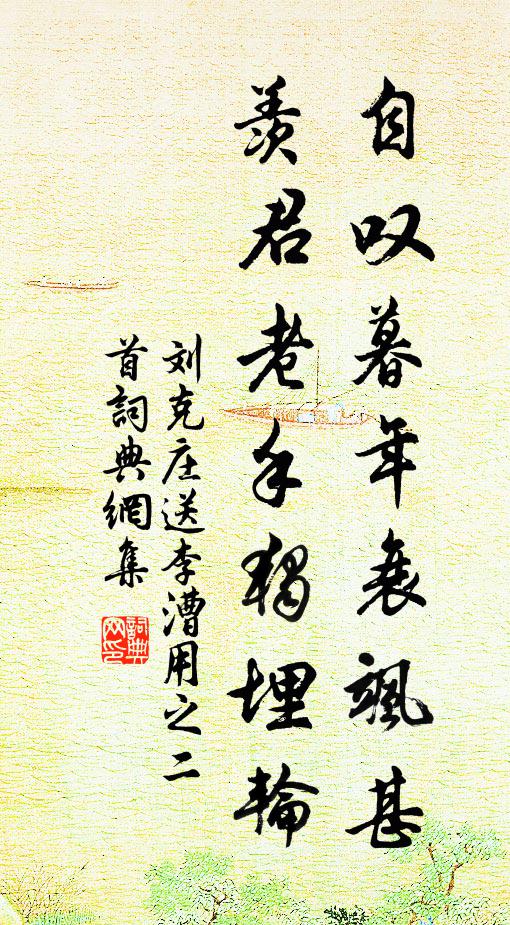 自叹暮年衰飒甚
羡君老手独埋轮
刘克庄送李漕用之二
首詞典網集
詞典
网印